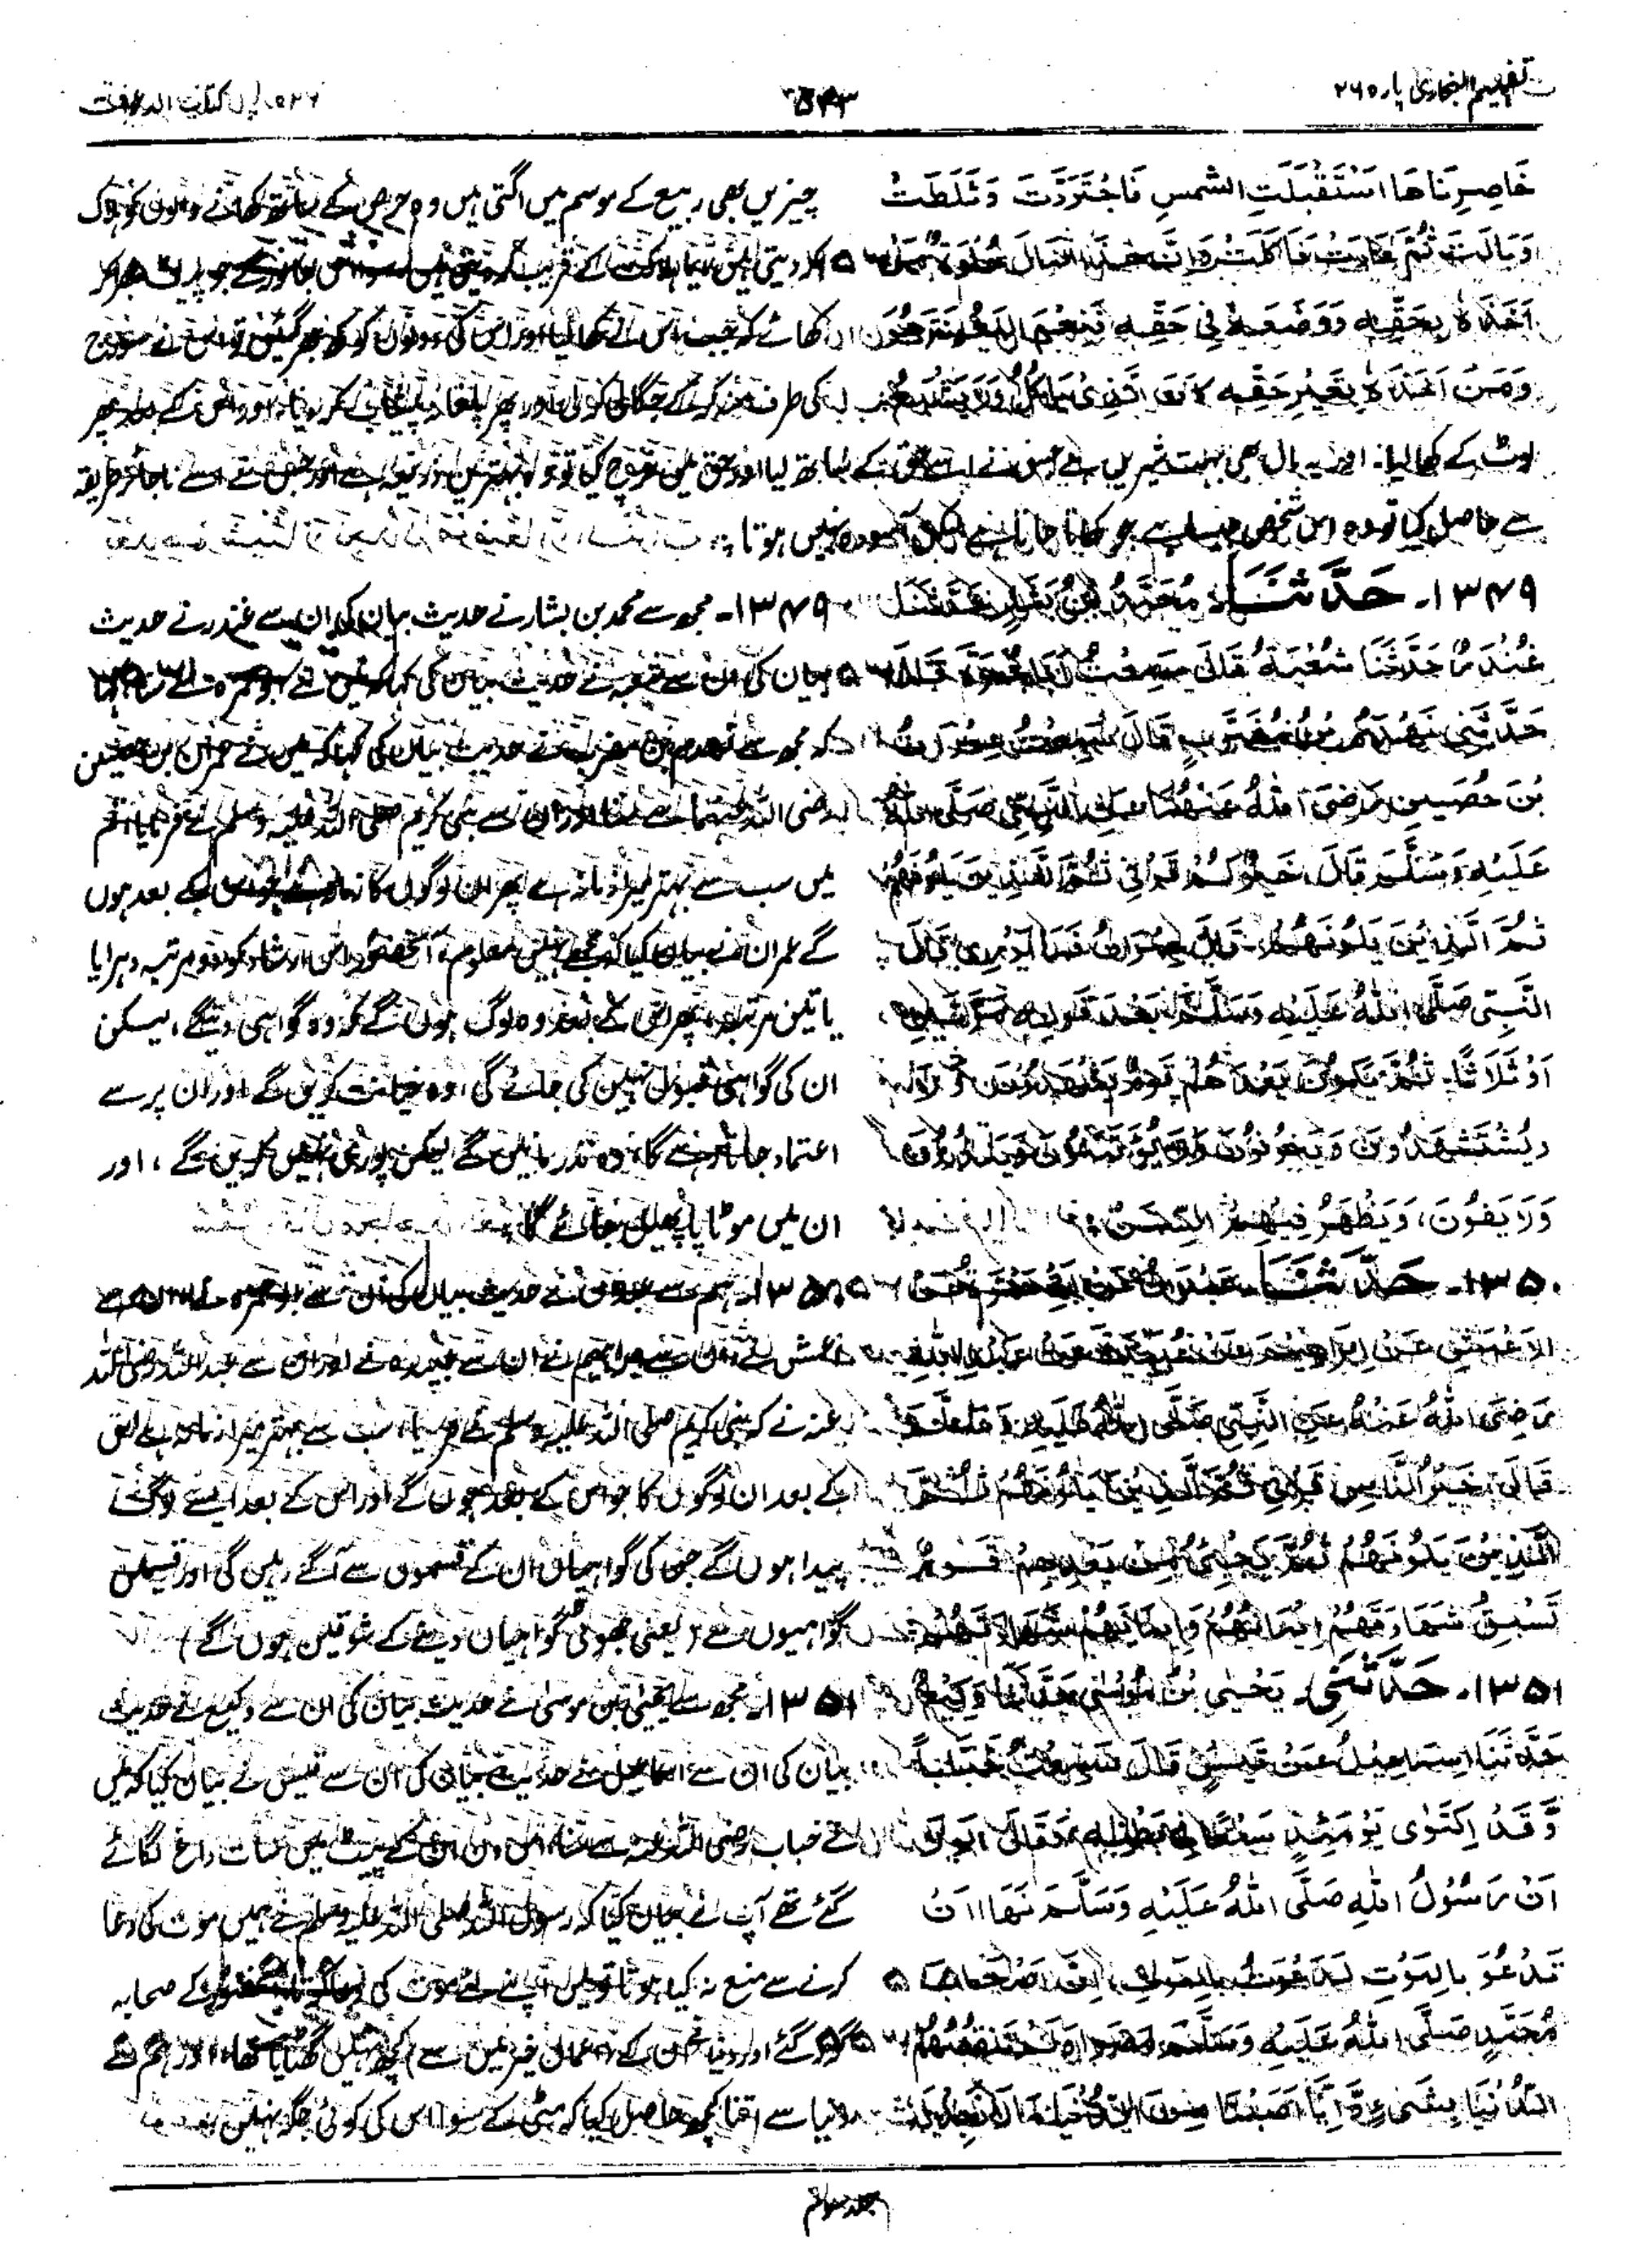 تفہیم البخاری پارہ ۲۶
۵۴۳
خَاصِرَتَاهَا اسْتَقْبَلَتِ الشمسِ فَاجْتَرَّتْ وَثَلَطَتْ
وَبَالَتْ ثُمَّ عَادَتْ فَاَكَلَتْ وَاِنَّ هٰذَا الْمَالَ حُلْوَةٌ مَنْ
اَخَذَهٗ بِحَقِّهٖ وَوَضَعَهٗ فِی حَقِّهٖ فَنِعْمَ الْمَعُوْنَةُ هُوَ
وَمَنْ اَخَذَهٗ بِغَيْرِ حَقِّهٖ كَانَ الَّذِیْ يَاْكُلُ وَلَا يَشْبَعُ
چیزیں بھی ربیع کے موسم میں اگتی ہیں وہ حرص کے ساتھ کھانے والوں کو ہلاک
کر دیتی ہیں یا ہلاکت کے قریب کر دیتی ہیں سوائے اس جانور کے جو پیٹ بھر کر
کھائے کہ جب اس نے کھا لیا اور اس کی دونوں کوکھ بھر گئیں تو اس نے سورج
کی طرف منہ کر کے جگالی کر لی اور پھر پاخانہ پیشاب کر دیا اور اس کے بعد پھر
لوٹ کے کھا لیا۔ اور یہ مال بھی بہت شیریں ہے جس نے اسے حق کے ساتھ لیا اور حق میں خرچ کیا تو وہ بہترین ذریعہ ہے اور جس نے اسے ناجائز طریقہ
سے حاصل کیا تو وہ اس شخص جیسا ہے جو کھاتا جاتا ہے لیکن آسودہ نہیں ہوتا
۱۳۴۹۔ حَدَّثَنَا۔ مُحَمَّدُ بْنُ بَشَّارٍ حَدَّثَنَا
غُنْدَرٌ حَدَّثَنَا شُعْبَةُ قَالَ سَمِعْتُ اَبَا جَمْرَةَ قَالَ
حَدَّثَنِی زَهْدَمُ بْنُ مُضَرِّبٍ قَالَ سَمِعْتُ عِمْرَانَ
بْنَ حُصَيْنٍ رَضِیَ اللّٰهُ عَنْهُمَا عَنِ النَّبِیِّ صَلَّی اللّٰهُ
عَلَيْهِ وَسَلَّمَ قَالَ خَيْرُكُمْ قَرْنِی ثُمَّ الَّذِيْنَ يَلُوْنَهُمْ
ثُمَّ الَّذِيْنَ يَلُوْنَهُمْ قَالَ عِمْرَانُ فَمَا اَدْرِیْ قَالَ
النَّبِیُّ صَلَّی اللّٰهُ عَلَيْهِ وَسَلَّمَ بَعْدَ قَوْلِهٖ مَرَّتَيْنِ
اَوْ ثَلَاثًا ثُمَّ يَكُوْنُ بَعْدَهُمْ قَوْمٌ يَشْهَدُوْنَ وَلَا
يُسْتَشْهَدُوْنَ وَيَخُوْنُوْنَ وَلَا يُؤْتَمَنُوْنَ وَيَنْذُرُوْنَ
وَلَا يَفُوْنَ، وَيَظْهَرُ فِيْهِمُ السِّمَنُ
۱۳۴۹۔ مجھ سے محمد بن بشار نے حدیث بیان کی ان سے غندر نے حدیث
بیان کی ان سے شعبہ نے حدیث بیان کی کہا کہ میں نے ابو جمرہ سے سنا کہا
کہ مجھ سے زہدم بن مضرب نے حدیث بیان کی کہا کہ میں نے عمران بن حصین
رضی اللہ عنہما سے سنا اور ان سے نبی کریم صلی اللہ علیہ وسلم نے فرمایا تم
میں سب سے بہتر میرا زمانہ ہے پھر ان لوگوں کا زمانہ ہے جو اس کے بعد ہوں
گے عمران نے بیان کیا کہ مجھے نہیں معلوم آنحضورؐ اس ارشاد کو دو مرتبہ دہرایا
یا تین مرتبہ، پھر اس کے بعد وہ لوگ ہوں گے کہ وہ گواہی دینگے، لیکن
ان کی گواہی قبول نہیں کی جائے گی، وہ خیانت کریں گے اور ان پر سے
اعتماد جاتا رہے گا، وہ نذر مانیں گے لیکن پوری نہیں کریں گے، اور
ان میں موٹاپا پھیل جائے گا
۱۳۵۰۔ حَدَّثَنَا عَبْدَانُ عَنْ اَبِی حَمْزَةَ عَنِ
الْاَعْمَشِ عَنْ اِبْرَاهِيْمَ عَنْ عُبَيْدَةَ عَنْ عَبْدِ اللّٰهِ
رَضِیَ اللّٰهُ عَنْهُ عَنِ النَّبِیِّ صَلَّی اللّٰهُ عَلَيْهِ وَسَلَّمَ
قَالَ خَيْرُ النَّاسِ قَرْنِی ثُمَّ الَّذِيْنَ يَلُوْنَهُمْ ثُمَّ
الَّذِيْنَ يَلُوْنَهُمْ ثُمَّ يَجِیْءُ مِنْ بَعْدِهِمْ قَوْمٌ
تَسْبِقُ شَهَادَتُهُمْ اَيْمَانَهُمْ وَاَيْمَانُهُمْ شَهَادَتَهُمْ
۱۳۵۰۔ ہم سے عبدان نے حدیث بیان کی ان سے ابو حمزہ نے ان سے
اعمش نے ان سے ابراہیم نے ان سے عبیدہ نے اور ان سے عبداللہ رضی اللہ
عنہ نے کہ نبی کریم صلی اللہ علیہ وسلم نے فرمایا، سب سے بہتر میرا زمانہ ہے اس
کے بعد ان لوگوں کا جو اس کے بعد ہوں گے اور اس کے بعد ایسے لوگ
پیدا ہوں گے جن کی گواہیاں ان کے قسموں سے آگے رہیں گی اور قسمیں
گواہیوں سے (یعنی جھوٹی گواہیاں دینے کے شوقین ہوں گے)
۱۳۵۱۔ حَدَّثَنِی۔ يَحْيٰی بْنُ مُوْسٰی حَدَّثَنَا وَكِيْعٌ
حَدَّثَنَا اِسْمَاعِيْلُ عَنْ قَيْسٍ قَالَ سَمِعْتُ خَبَّابًا
وَّقَدْ اِكْتَوٰی يَوْمَئِذٍ سَبْعًا فِی بَطْنِهٖ وَقَالَ لَوْلَا
اَنَّ رَسُوْلَ اللّٰهِ صَلَّی اللّٰهُ عَلَيْهِ وَسَلَّمَ نَهَانَا اَنْ
نَدْعُوَ بِالْمَوْتِ لَدَعَوْتُ بِالْمَوْتِ، اِنَّ اَصْحَابَ
مُحَمَّدٍ صَلَّی اللّٰهُ عَلَيْهِ وَسَلَّمَ مَضَوْا وَلَمْ تَنْقُصْهُمُ
الدُّنْيَا بِشَیْءٍ وَّاِنَّا اَصَبْنَا مِنَ الدُّنْيَا مَا لَا نَجِدُ لَهٗ
۱۳۵۱۔ مجھ سے یحییٰ بن موسیٰ نے حدیث بیان کی ان سے وکیع نے حدیث
بیان کی ان سے اسماعیل نے حدیث بیان کی ان سے قیس نے بیان کیا کہ میں
نے خباب رضی اللہ عنہ سے سنا، اس دن ان کے پیٹ میں سات داغ لگائے
گئے تھے آپ نے بیان کیا کہ رسول اللہ صلی اللہ علیہ وسلم نے ہمیں موت کی دعا
کرنے سے منع نہ کیا ہوتا تو میں اپنے لئے موت کی دعا کرتا، آنحضورؐ کے صحابہ
گزر گئے اور دنیا نے ان کے (اعمال خیر میں سے) کچھ نہیں گھٹایا تھا، اور ہم نے
دنیا سے اتنا کچھ حاصل کیا کہ مٹی کے سوا اس کی کوئی جگہ نہیں